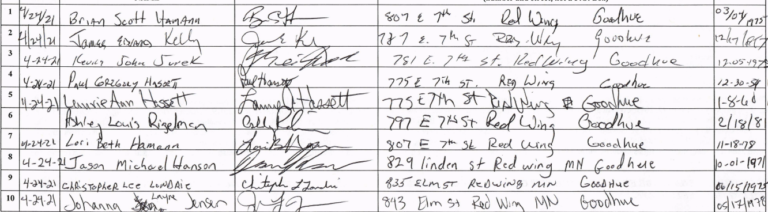 1 4/24/21 Brian Scott Hamann 807 E 7th St Red Wing Goodhue
2 4/24/21 James Kelly 787 E. 7th St Goodhue
3 4-24-21 Kevin John Jurek 781 E. 7th St. Red Wing Goodhue
4 4-24-21 Paul Gregory Hassett Paul Hassett 775 E 7th St. Red Wing Goodhue
5 4-24-21 Laurie Ann Hassett Hassett 775 E 7th St Red Wing Goodhue 1-8-6
6 Ashley Louis Rigelman 797 E 7th St Red Wing Goodhue 2/18/8
7 4-24-21 Lori Beth Hamann 807 E 7th St Red Wing Goodhue 11-18-78
8 4-24-21 Jason Michael Hanson 829 linden St Red wing MN Goodhue 10-01-1971
9 4-24-21 CHRISTOPHER LEE 835 ELM ST REDWING MN GOODHUE 06/15/1975
10 4-24-21 Johanna Layne Jensen 843 Elm St Red Wing MN Goodhue 05/17/1978